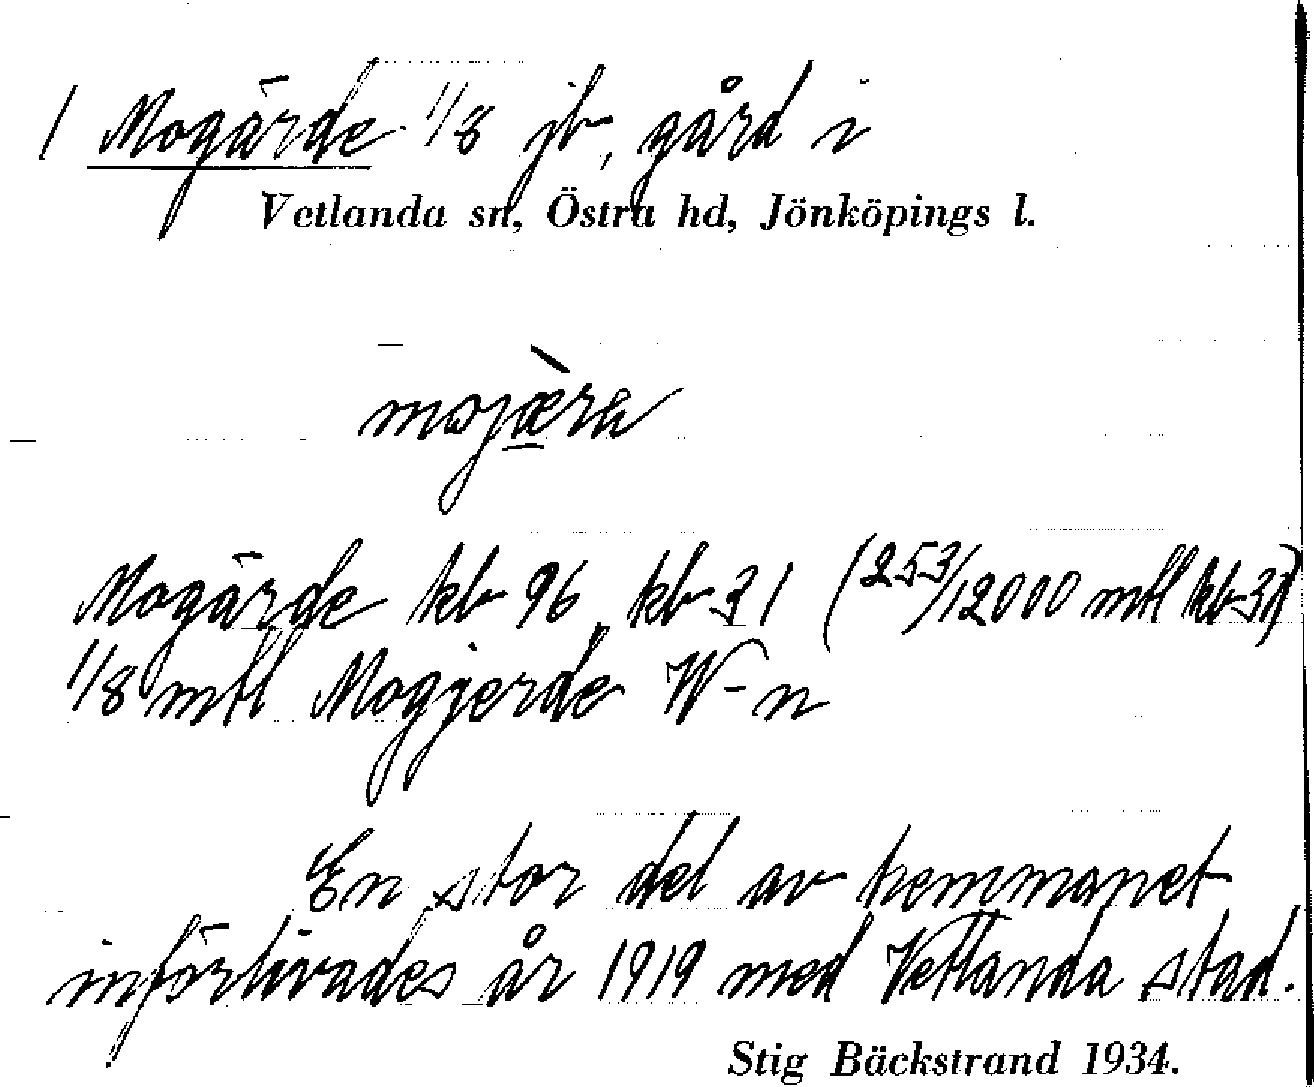 1 Mogärde 1/8 jb, gård i
Vetlanda sn, Östra hd, Jönköpings l.
Mogärde kb 96 kb 31 (253/12000 mtl kb 31)
1/8 mtl Mogjerde W-n
En stor del av hemmanet
införlivades år 1919 med Vetlanda stad.
Stig Bäckstrand 1934.